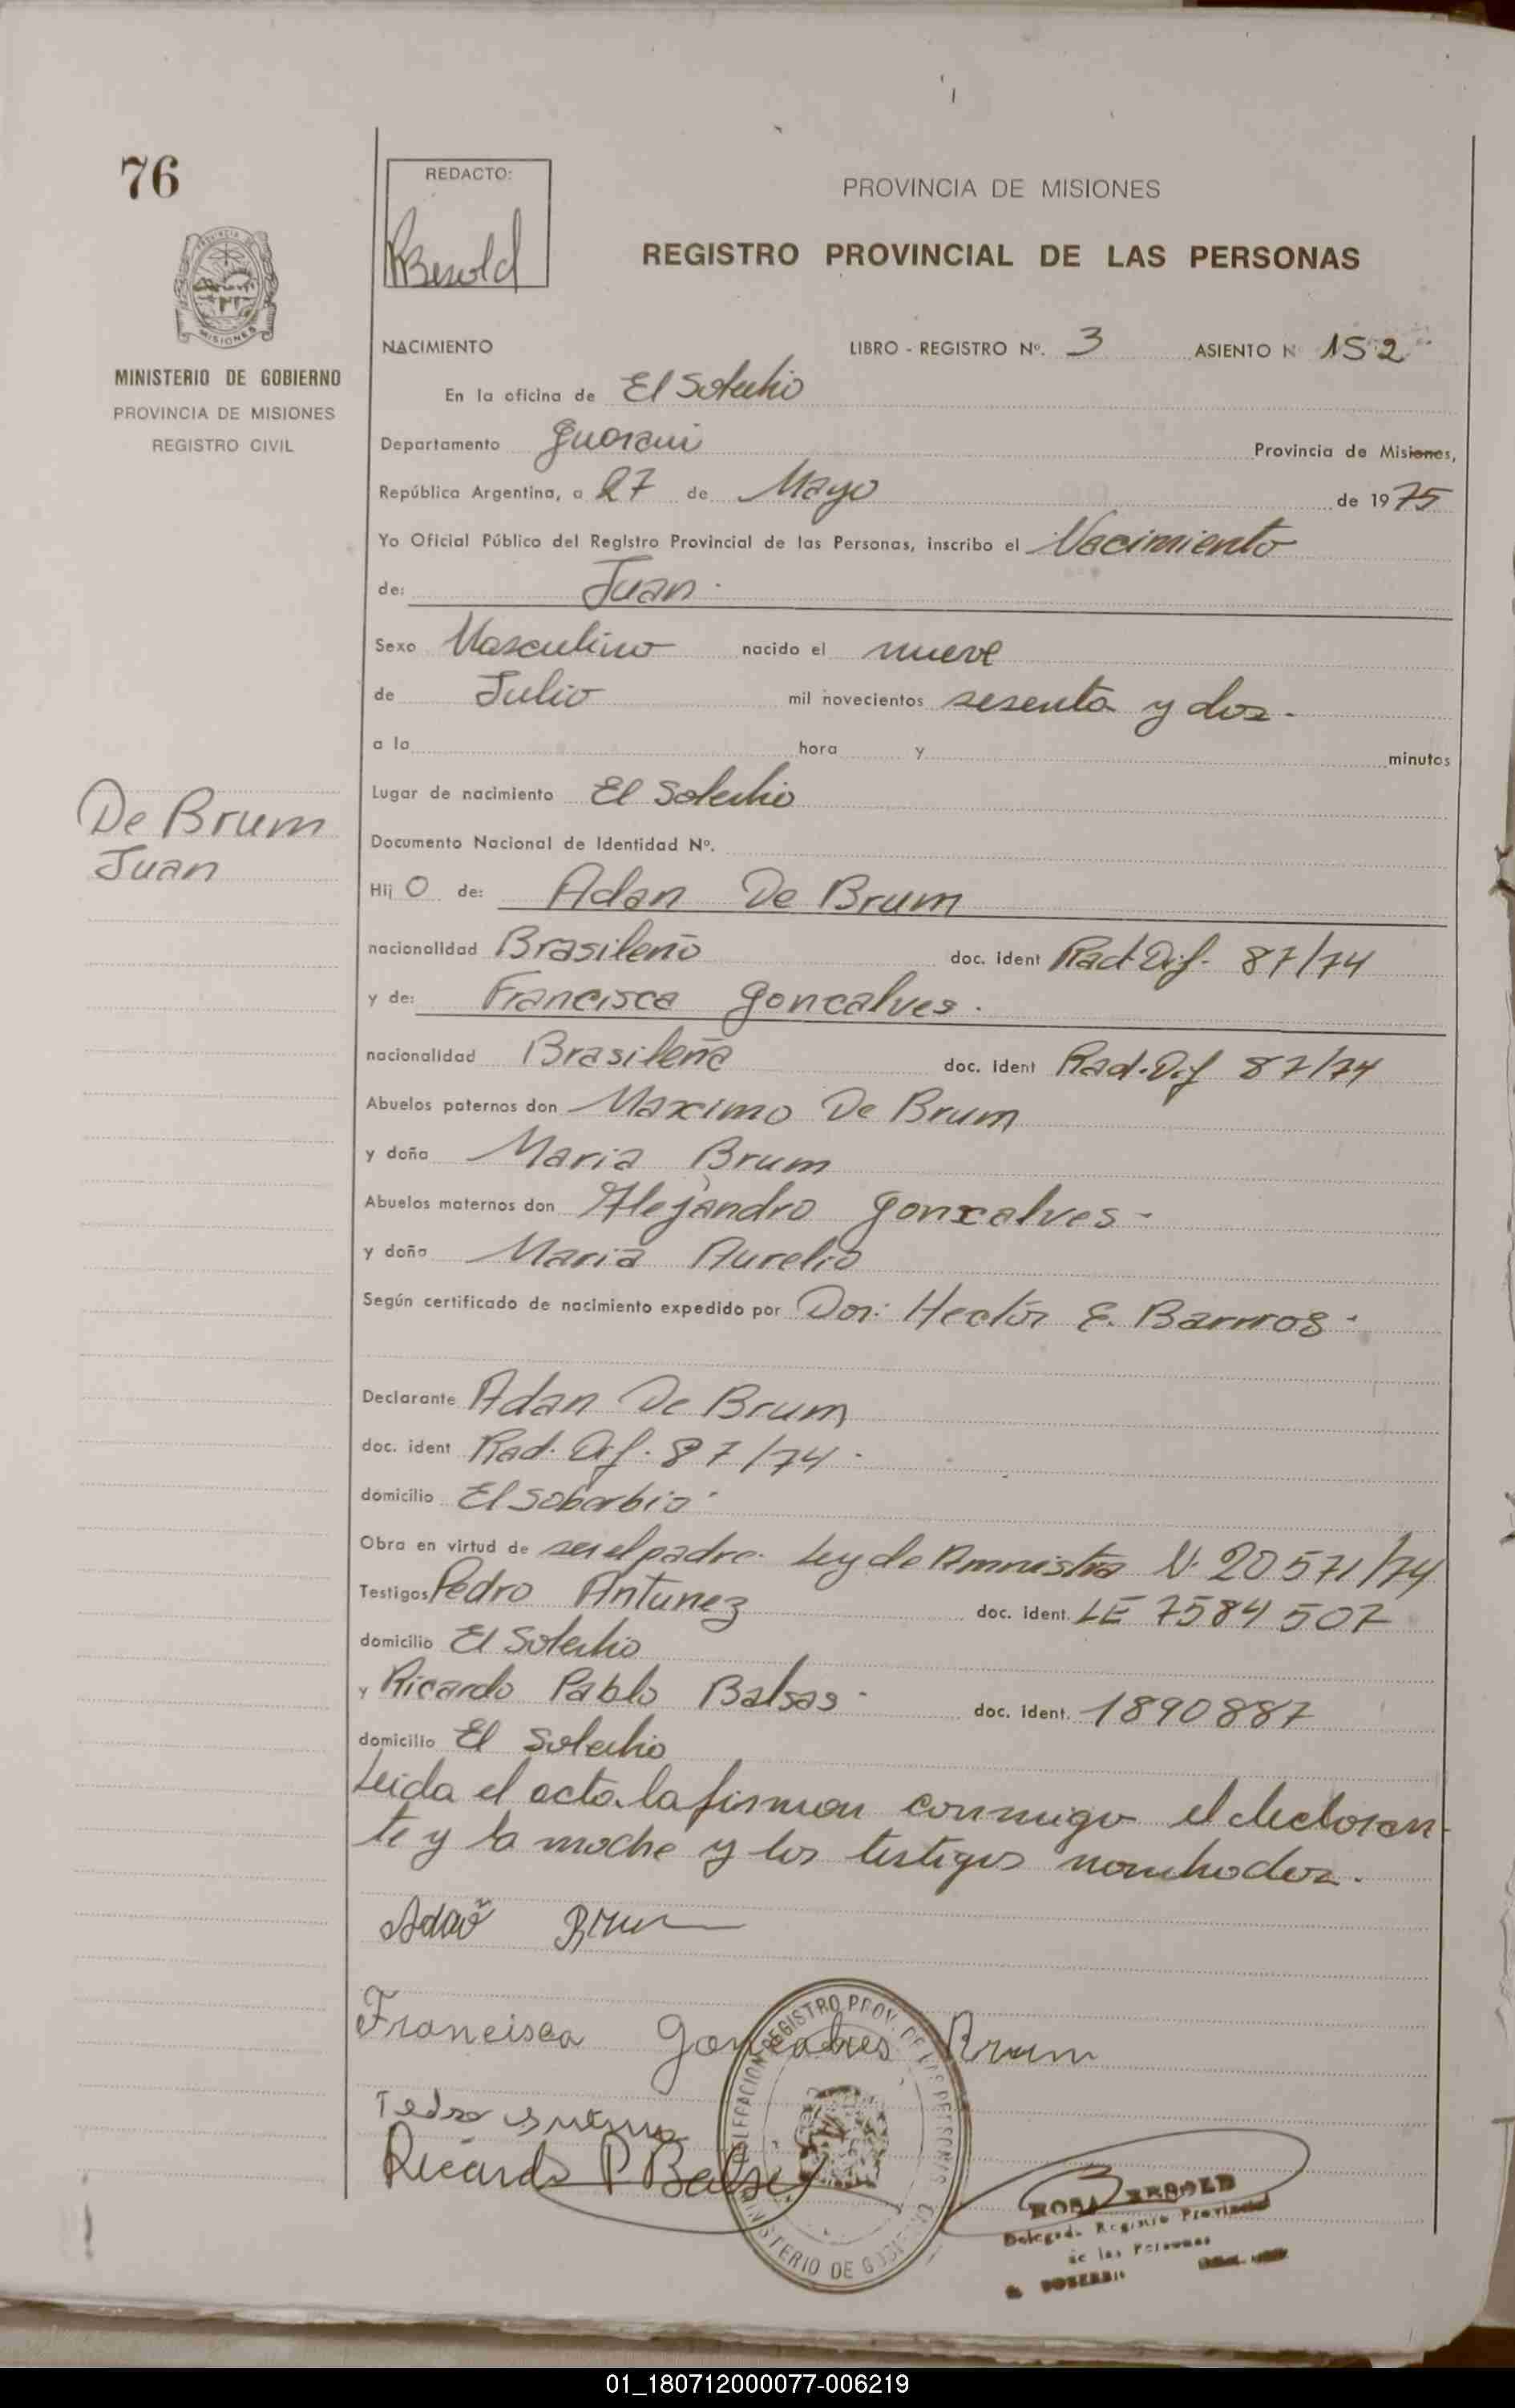 76
REDACTO:
RBesold
PROVINCIA DE MISIONES
REGISTRO PROVINCIAL DE LAS PERSONAS
MINISTERIO DE GOBIERNO
PROVINCIA DE MISIONES
REGISTRO CIVIL
NACIMIENTO LIBRO - REGISTRO Nº. 3 ASIENTO N 152
En la oficina de El Soberbio
Departamento Guarani Provincia de Misiones,
República Argentina, a 27 de Mayo de 1975
Yo Oficial Público del Registro Provincial de las Personas, inscribo el Nacimiento
de: Juan.
Sexo Masculino nacido el nueve
de Julio mil novecientos sesenta y dos.
a la hora y minutos
Lugar de nacimiento El Soberbio
De Brum
Juan
Documento Nacional de Identidad Nº.
Hij o de: Adan De Brum
nacionalidad Brasileño doc. ident Rad Def. 87/74
y de: Francisca Goncalves.
nacionalidad Brasileña doc. ident Rad. Def 87/74
Abuelos paternos don Maximo De Brum
y doña Maria Brum
Abuelos maternos don Alejandro Gonzalves-
y doña Maria Aurelio
Según certificado de nacimiento expedido por Dor: Hectór E. Barrros.
Declarante Adan De Brum
doc. ident Rad. Def. 87/74.
domicilio El Soberbio.
Obra en virtud de ser el padre. Ley de Amnistia N. 20571/74
Testigos Pedro Antunez doc. ident. LE 7584507
domicilio El Soberbio
y Ricardo Pablo Balsas- doc. ident. 1890887
domicilio El Soberbio
Leida el acta la firman conmigo el declaran-
te y la madre y los testigos nombrados.
Adaõ Brum
Francisca Goncalves Brum
Pedro Antunez
Ricardo P Balsa
DELEGACION REGISTRO PROV. DE LAS PERSONAS
MINISTERIO DE GOBIERNO
ROSA BESOLD
Delegada Registro Provincial
de las Personas
01_180712000077-006219